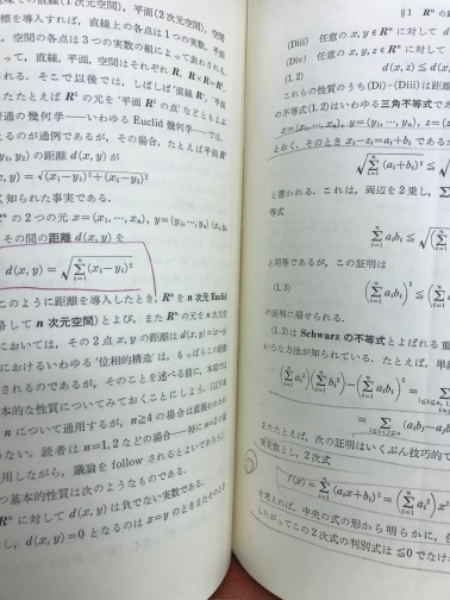 直線(1次元空間), 平面(2次元空間), 空間
標を導入すれば, 直線上の各点は1つの実数, 平面
, 空間の各点は3つの実数の組によって表わされる.
って, 直線, 平面, 空間はそれぞれ R, R×R=R²,
れる. そこで以後では, しばしば'直線 R', '平面
たとえば R² の元を'平面 R² の点'などともよぶ
普通の幾何学——いわゆる Euclid 幾何学——では,
えるのが通例であるが, その場合, たとえば平面 R²
y₁, y₂) の距離 d(x, y) が
, y) = √(x₁−y₁)²+(x₂−y₂)²
く知られた事実である.
Rⁿ の2つの元 x=(x₁, …, xₙ), y=(y₁, …, yₙ)
その間の距離 d(x, y) を
d(x, y) = √Σⁿᵢ₌₁(xᵢ−yᵢ)²
このように距離を導入したとき, Rⁿ を n 次元 Euclid
略して n 次元空間)とよび, また Rⁿ の元を n次元空
においては, その2点 x, y の距離は d(x, y)=|x−y|
におけるいわゆる'位相的構造'は, もっぱらこの距離
されるのであるが, そのことを述べる前に, 本項では
本的な性質についてみておくことにしよう. (以下本
n について通用するが, n≧4 の場合は直接
ない. 読者は n=1, 2 などの場合——特に n=2 の場
用しながら, 議論を follow されるとよいであろう.)
つ基本的性質は次のようなものである.
Rⁿ に対して d(x, y) は負でない実数である.
し, d(x, y)=0 となるのは x=y のときまたその
§1 Rⁿ の
(Diii) 任意の x, y∈Rⁿ に対して d
(Div) 任意の x, y, z∈Rⁿ に対して
(1.2) d(x, z) ≦ d(x,
これらの性質のうち (Di)-(Diii) は距離
の不等式(1.2)はいわゆる三角不等式であ
x=(x₁, …, xₙ), y=(y₁, …, yₙ), z=(z₁
とおく. そのとき xᵢ−zᵢ=aᵢ+bᵢ である
√Σⁿᵢ₌₁(aᵢ+bᵢ)² ≦ √
と書かれる. これは, 両辺を2乗し, Σ
等式
Σⁿᵢ₌₁ aᵢbᵢ ≦ √(Σⁿᵢ₌₁
と同等であるが, この証明は
(1.3) (Σⁿᵢ₌₁ aᵢbᵢ)² ≦ (Σⁿᵢ₌₁ a
の証明に帰せられる.
(1.3)は Schwarz の不等式とよばれる重
いろな方法が知られている. たとえば, 単純
(Σⁿᵢ₌₁ aᵢ²)(Σⁿᵢ₌₁ bᵢ²)−(Σⁿᵢ₌₁ aᵢbᵢ)² = Σ
= Σ (aᵢbⱼ−aⱼb
またたとえば, 次の証明はいくぶん技巧的で
実変数とし, 2次式
f(x) = Σⁿᵢ₌₁(aᵢx+bᵢ)² = (Σⁿᵢ₌₁ aᵢ²)x²
を考えれば, 中央の式の形から明らかに, 任
したがってこの2次式の判別式は ≦0 でなけ